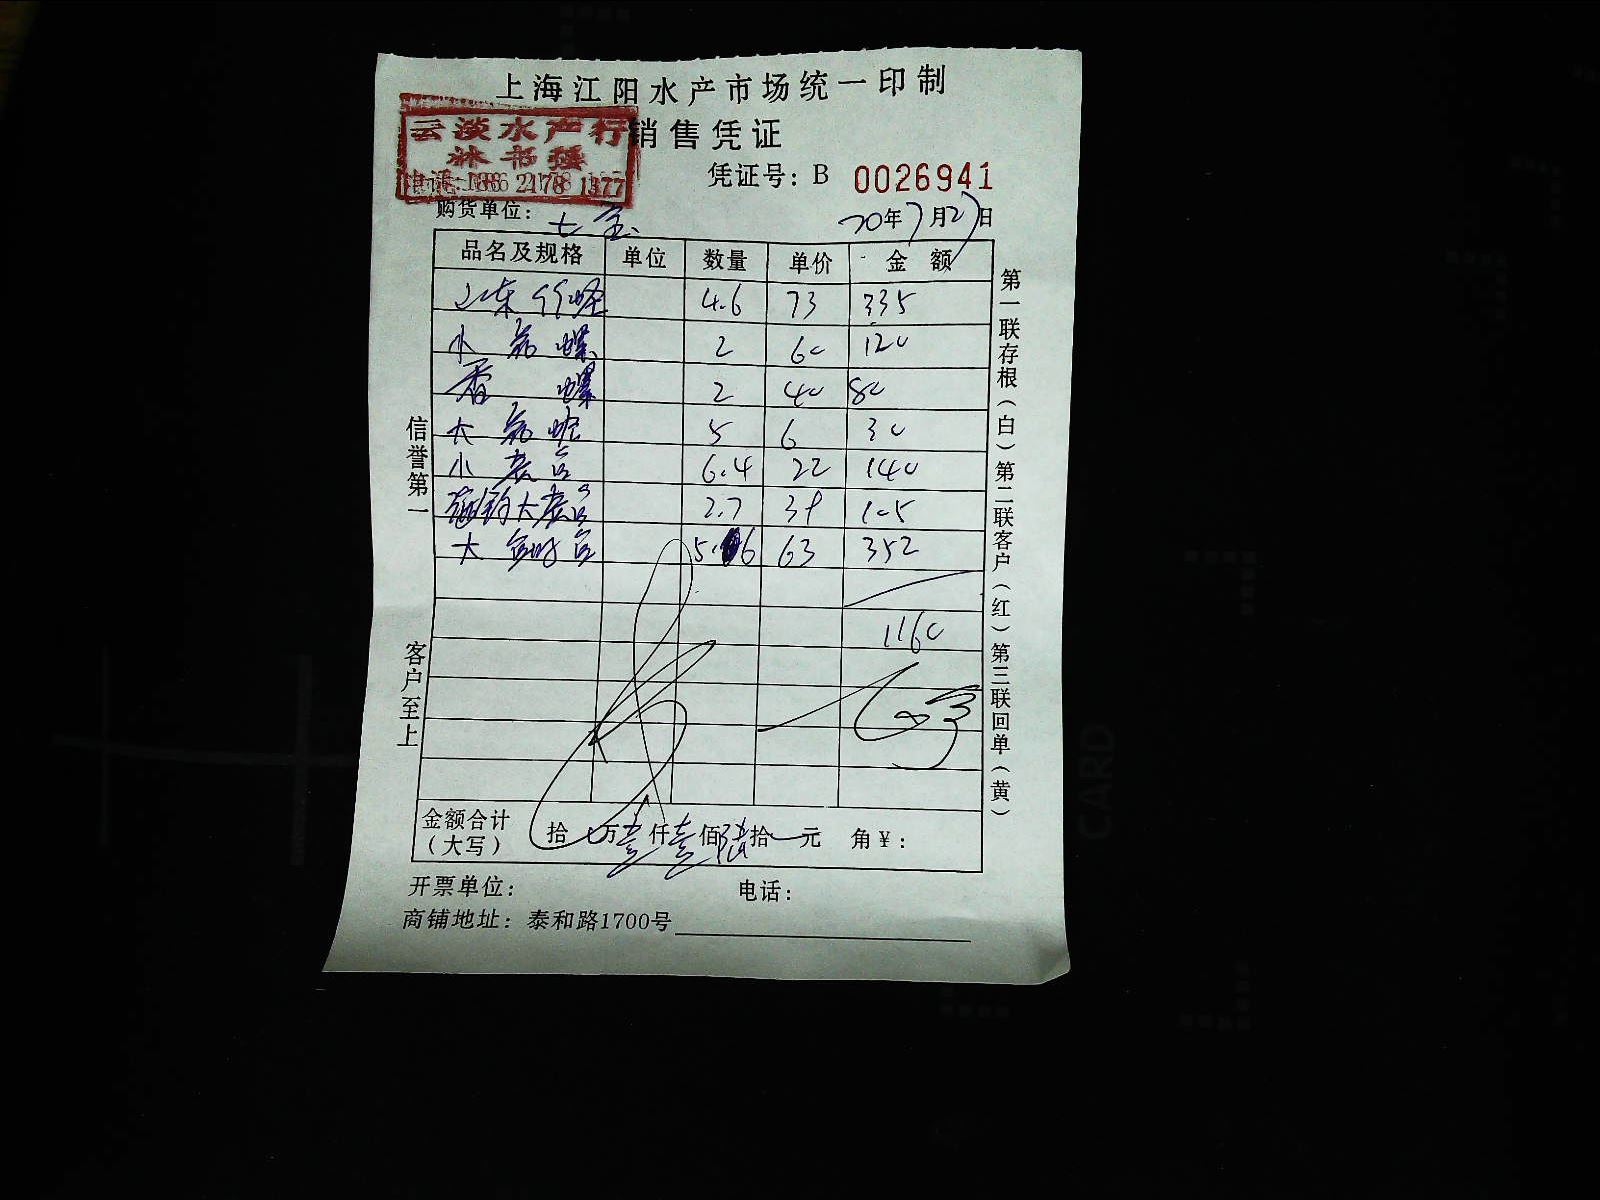 上海江阳水产市场统一印制
云淡水产行
销售凭证
林书强
凭证号：B 0026941
电话:1 2178 1377
购货单位：七宝
20年7月27日
品名及规格 单位 数量 单价 金额
山东竹蛏 4.6 73 335
小 螺 2 60 120
香螺 2 40 80
大 5 6 30
小 6.4 22 140
大 2.7 39 105
大 5.6 63 352
1160
金额合计（大写） 拾 万壹仟壹佰陆拾 元 角￥：
开票单位： 电话：
商铺地址：泰和路1700号
信誉第一 客户至上
第一联存根（白）第二联客户（红）第三联回单（黄）